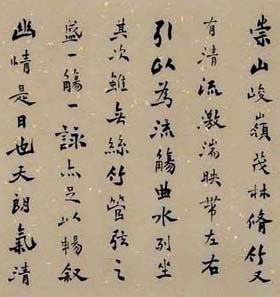 崇山峻嶺茂林脩竹又
有清流激湍映帶左右
引以為流觴曲水列坐
其次雖無絲竹管弦之
盛一觴一詠亦足以暢敘
幽情是日也天朗氣清